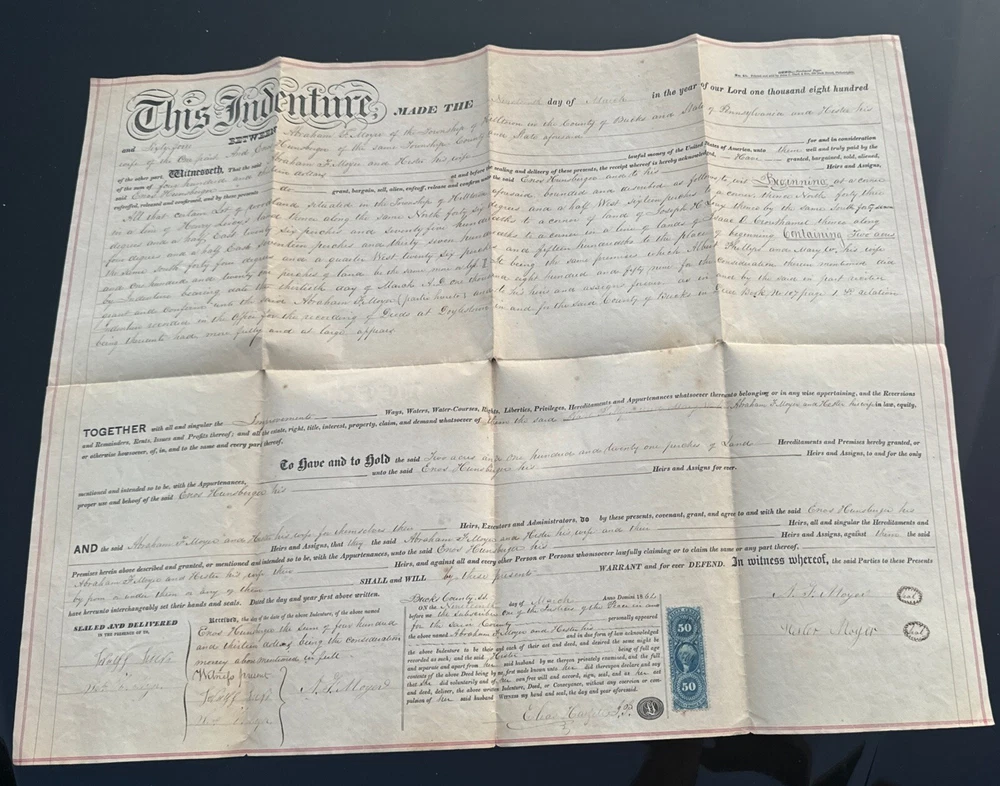 This Indenture, MADE THE Nineteenth day of March in the year of our Lord one thousand eight hundred
and Sixty four BETWEEN Abraham F. Moyer of the Township of Hilltown in the County of Bucks and State of Pennsylvania and Hester his
wife of the One part And Enos Hunsberger of the same Township County and State aforesaid
of the other part, Witnesseth, That the said Abraham F. Moyer and Hester his wife for and in consideration
of the sum of four hundred and thirteen dollars lawful money of the United States of America, unto them well and truly paid by the
said Enos Hunsberger at and before the sealing and delivery of these presents, the receipt whereof is hereby acknowledged, have granted, bargained, sold, aliened,
enfeoffed, released and confirmed, and by these presents do grant, bargain, sell, alien, enfeoff, release and confirm unto the said Enos Hunsberger and to his Heirs and Assigns,
All that certain Lot of land situated in the Township of Hilltown aforesaid bounded and described as follows to wit Beginning at a corner
in a line of Henry
degrees and a half East twenty six perches and seventy five hundredths to a corner of land of Joseph H.
four degrees and a half East seventeen perches and thirty seven hundredths to a corner in a line of lands of Isaac O. Crouthamel thence along
the same South forty four degrees and a quarter West twenty six perches and fifteen hundredths to the place of beginning Containing Two acres
and one hundred and twenty one perches of land be the same more or less It being the same premises which Albert Phillips and Mary W. his wife
by Indenture bearing date the thirtieth day of March A.D. one thousand eight hundred and fifty nine for the Consideration therein mentioned did
grant and Confirm unto the said Abraham F. Moyer (party hereto) and to his heirs and assigns forever as in and by the said in part recited
Indenture recorded in the Office for the recording of Deeds at Doylestown in and for the said County of Bucks in Deed Book No 107 page 1 &c relation
being thereunto had more fully and at large appears
TOGETHER with all and singular the Improvements Ways, Waters, Water-Courses, Rights, Liberties, Privileges, Hereditaments and Appurtenances whatsoever thereunto belonging or in any wise appertaining, and the Reversions
and Remainders, Rents, Issues and Profits thereof; and all the estate, right, title, interest, property, claim, and demand whatsoever of them the said Abraham F. Moyer and Hester his wife in law, equity,
or otherwise howsoever, of, in, and to the same and every part thereof.
To Have and to Hold the said Two acres and one hundred and twenty one perches of Land Hereditaments and Premises hereby granted, or
mentioned and intended so to be, with the Appurtenances, unto the said Enos Hunsberger his Heirs and Assigns, to and for the only
proper use and behoof of the said Enos Hunsberger his Heirs and Assigns for ever.
AND the said Abraham F. Moyer and Hester his wife for themselves their Heirs, Executors and Administrators, do by these presents, covenant, grant, and agree to and with the said Enos Hunsberger his
Heirs and Assigns, that they the said Abraham F. Moyer and Hester his wife and their Heirs, all and singular the Hereditaments and
Premises herein above described and granted, or mentioned and intended so to be, with the Appurtenances, unto the said Enos Hunsberger his Heirs and Assigns, against them the said
Abraham F. Moyer and Hester his wife their Heirs, and against all and every other Person or Persons whomsoever lawfully claiming or to claim the same or any part thereof,
by from or under them or any of them SHALL and WILL by these presents WARRANT and for ever DEFEND. In witness whereof, the said Parties to these Presents
have hereunto interchangeably set their hands and seals. Dated the day and year first above written.
SEALED AND DELIVERED
IN THE PRESENCE OF US,
Received, the day of the date of the above Indenture, of the above named
Enos Hunsberger the sum of four hundred
and thirteen dollars being the consideration
money above mentioned in full
Witness present
A. F. Moyer
Bucks County SS.
ON the Nineteenth day of March Anno Domini 1864,
before me the Subscriber one of the Justices of the Peace in and
for the said County personally appeared
the above named Abraham F. Moyer and Hester his
and in due form of law acknowledged
the above Indenture to be their and each of their act and deed, and desired the same might be
recorded as such; and the said Hester being of full age
and separate and apart from her said husband by me thereon privately examined, and the full
contents of the above Deed being by me first made known unto her did thereupon declare and say
that she did voluntarily and of her own free will and accord, sign, seal, and as her act
and deed, deliver, the above written Indenture, Deed, or Conveyance, without any coercion or com-
pulsion of her said husband Witness my hand and seal, the day and year aforesaid.
50
50
A. F. Moyer
Seal
Hester Moyer
Seal